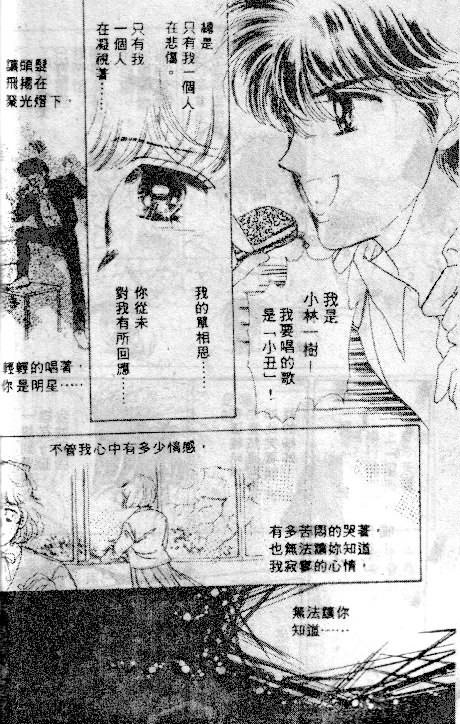 我是
小林一樹—
我要唱的歌
是「小丑」！
總是
只有我一個人
在悲傷。
只有我
一個人
在凝視著……
我的單相思……
你從未
對我有所回應……
讓頭髮
飛揚在
聚光燈下，
輕輕的唱著，
你是明星……
不管我心中有多少情感，
有多苦悶的哭著，
也無法讓妳知道
我寂寥的心情，
無法讓你
知道……